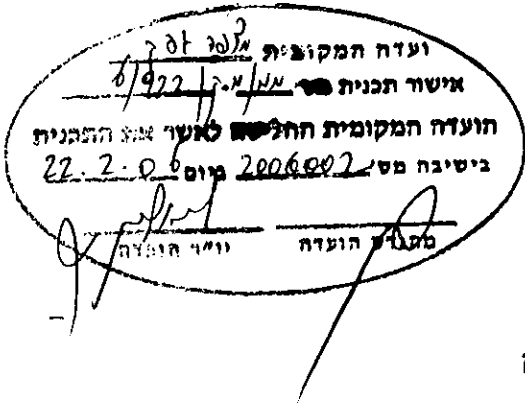 ועדה המקומית
אישור תכנית מס' ממ/מ.ק/ 922/6
הועדה המקומית החליטה לאשר את התכנית
בישיבה מס' 2006002 מיום 22.2.06
מהנדס הועדה יו"ר הועדה